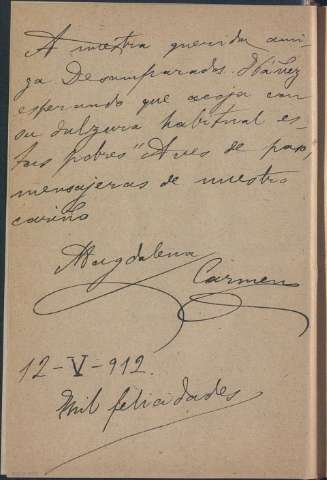 A nuestra querida ami-
ga Desamparados Ibáñez
esperando que acoja con
su dulzura habitual es-
tas pobres "Aves de paso,
mensajeras de nuestro
cariño
Magdalena
Carmen
12-V-912.
Mil felicidades